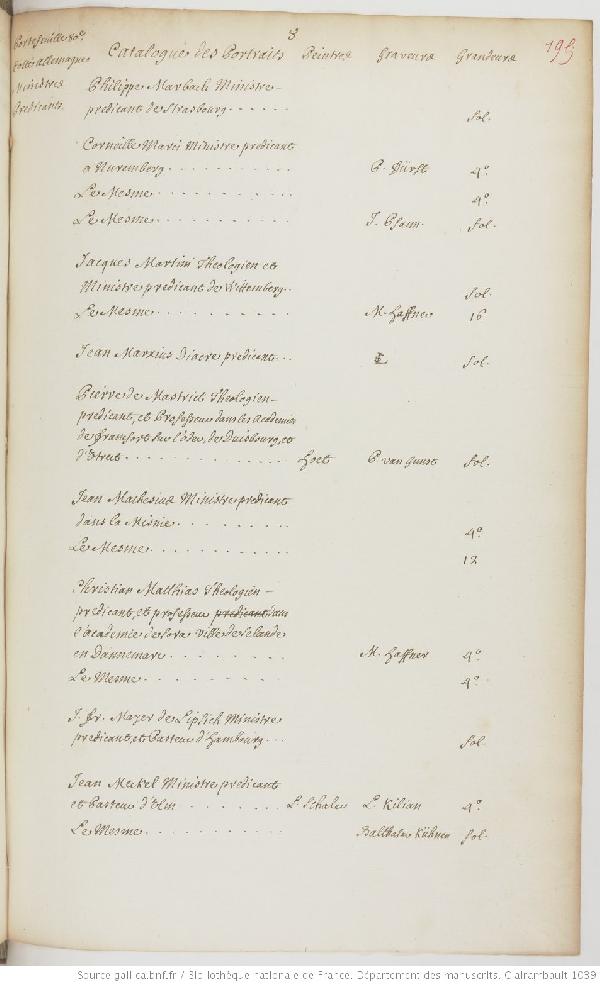 8
195
Portefeuille 80e
Catalogue des Portraits Peintres Graveurs Grandeurs
Ministres
Predicants
Philippe Marbach Ministre
predicant de Strasbourg . . . . . . fol.
Corneille Marci Ministre predicant
a Nuremberg . . . . . . . . . . P. Fürst 4o.
Le Mesme . . . . . . . . . . . 4o.
Le Mesme . . . . . . . . . . . J. Pfann fol.
Jacques Martini Theologien et
Ministre predicant de Wittemberg . . fol.
Le Mesme . . . . . . . . . . M. Haffner 16
Jean Marxius Diacre predicant . . . fol.
Pierre de Mastrick Theologien
predicant, et Professeur dans les Academies
de francfort sur l'oder, de Duisbourg, et
d'Utrect . . . . . . . . . . . . . Hoet P. van Gunst fol.
Jean Mathesius Ministre predicant
dans la Misnie . . . . . . . . . 4o.
Le Mesme . . . . . . . . . . . 12
Christian Matthias Theologien
predicant, et professeur predicant dans
l'academie de Sora ville de Selande
en Dannemarc . . . . . . . . . M. Haffner 4o.
Le Mesme . . . . . . . . . . . 4o.
J. fr. Mayer de Liplich Ministre
predicant, et Pasteur d'Hambourg . . . fol.
Jean Mekel Ministre predicant
et Pasteur d'Ulm . . . . . . . L. Schaler L. Kilian 4o.
Le Mesme . . . . . . . . . . . Balthaser Kühnen fol.
Source gallica.bnf.fr / Bibliothèque nationale de France. Département des manuscrits. Clairambault 1039